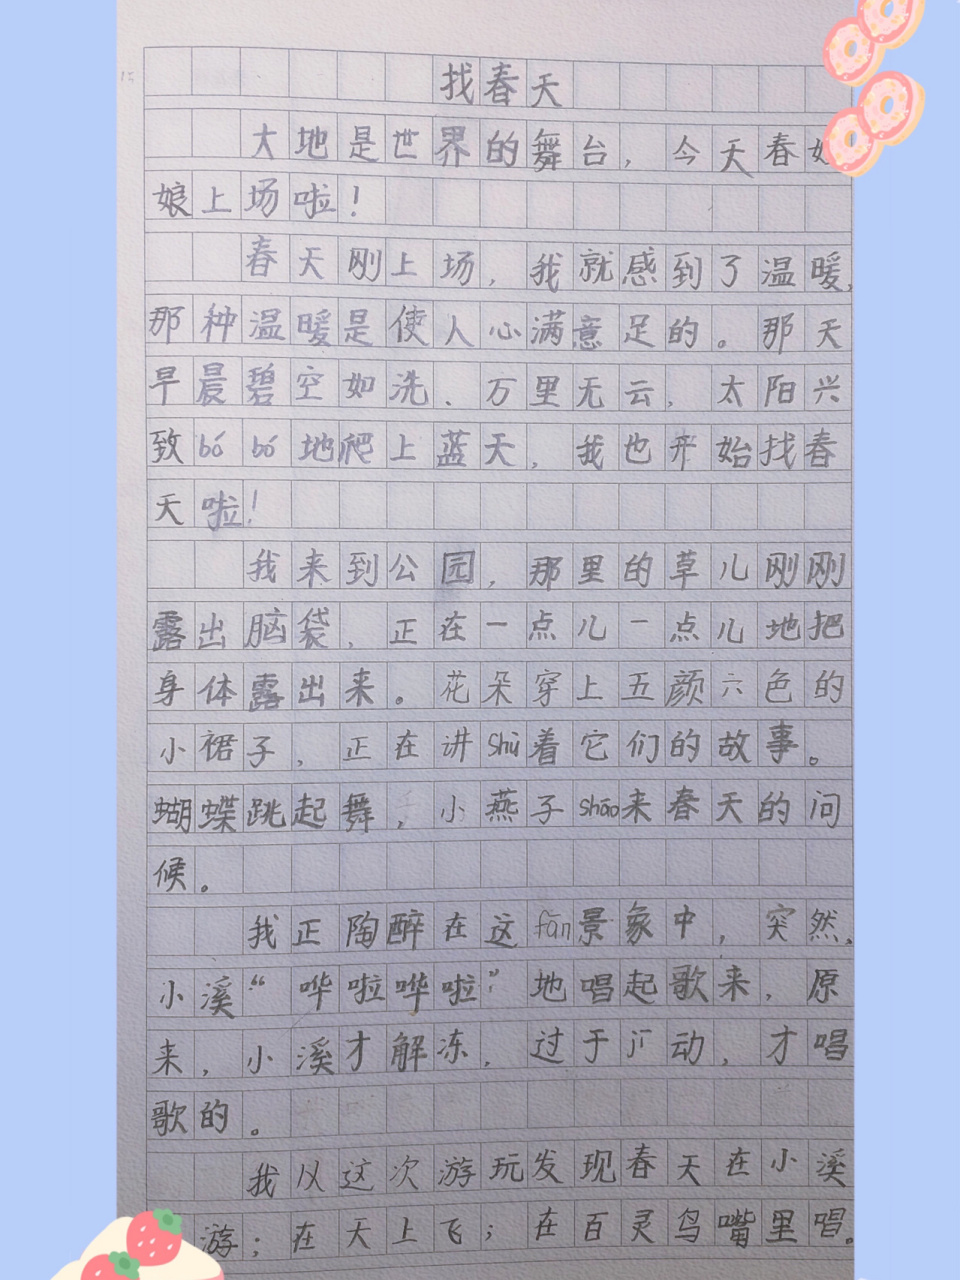 找春天
大地是世界的舞台，今天春
娘上场啦！
春天刚上场，我就感到了温暖，
那种温暖是使人心满意足的。那天
早晨碧空如洗、万里无云，太阳兴
致bóbó地爬上蓝天，我也开始找春
天啦！
我来到公园，那里的草儿刚刚
露出脑袋，正在一点儿一点儿地把
身体露出来。花朵穿上五颜六色的
小裙子，正在讲shù着它们的故事。
蝴蝶跳起舞，小燕子shāo来春天的问
候。
我正陶醉在这fān景象中，突然，
小溪“哗啦哗啦”地唱起歌来，原
来，小溪才解冻，过于jī动，才唱
歌的。
我从这次游玩发现春天在小溪
游；在天上飞；在百灵鸟嘴里唱。